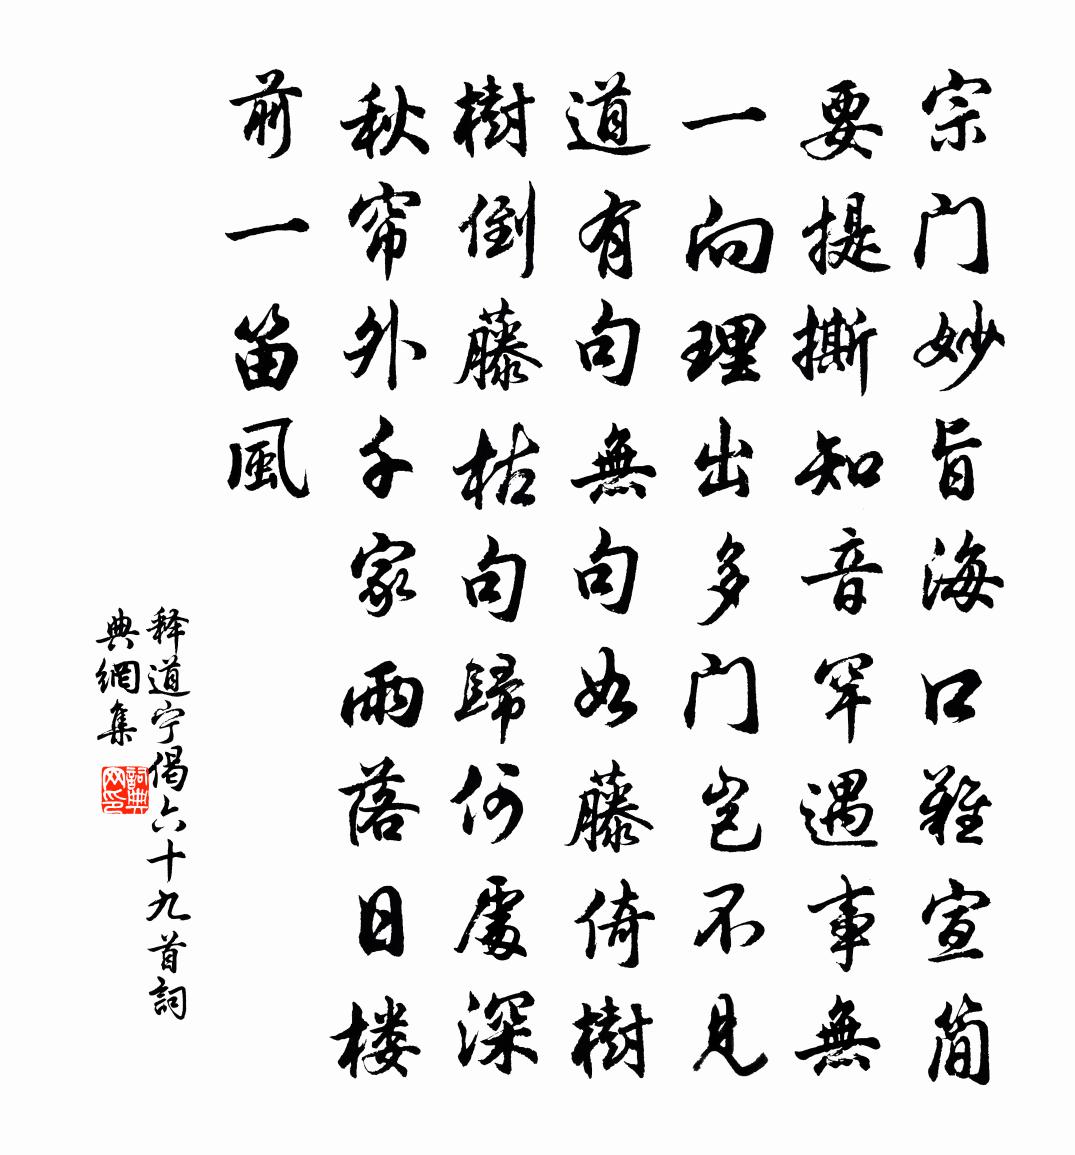 宗门妙旨海口難宣简
要提撕知音罕遇事無
一向理出多门岂不見
道有句無句如藤倚樹
樹倒藤枯句歸何處深
秋帘外千家雨落日楼
前一笛風
释道宁偈六十九首詞
典網集
詞典
网印